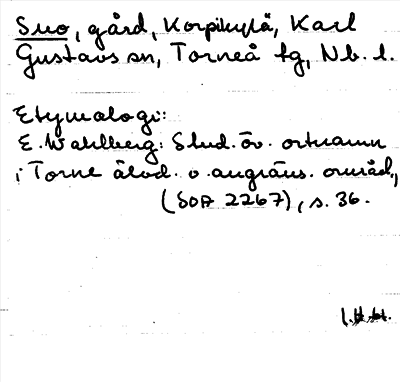 Suo, gård, Korpikylä, Karl
Gustavs sn, Torneå tg, Nb. l.
Etymologi:
E. Wahlberg: Stud. öv. ortnamn
i Torne älvd. o. angräns. områd.,
(SOA 2267), s. 36.